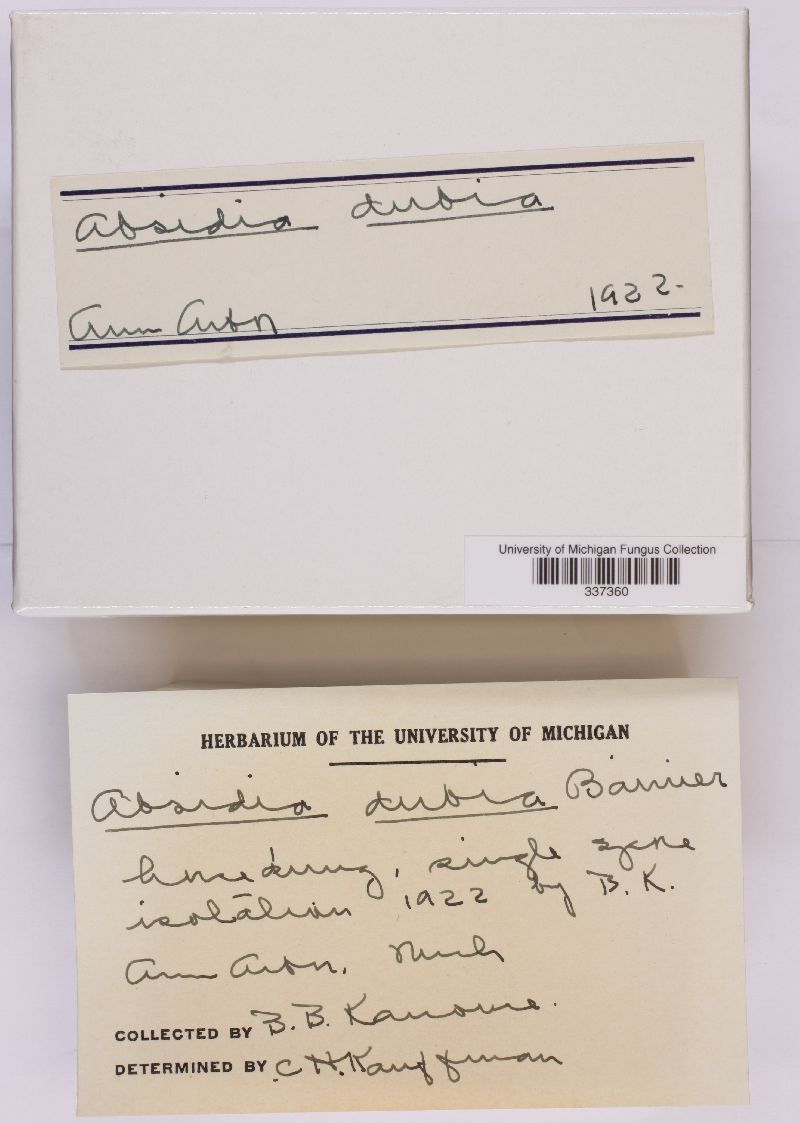 Absidia dubia
Ann Arbor 1922-
University of Michigan Fungus Collection
337360
HERBARIUM OF THE UNIVERSITY OF MICHIGAN
Absidia dubia Bainier
horse dung, single spore
isolation 1922 by B. K.
Ann Arbor, Mich
COLLECTED BY B. B. Kanouse.
DETERMINED BY C H. Kauffman